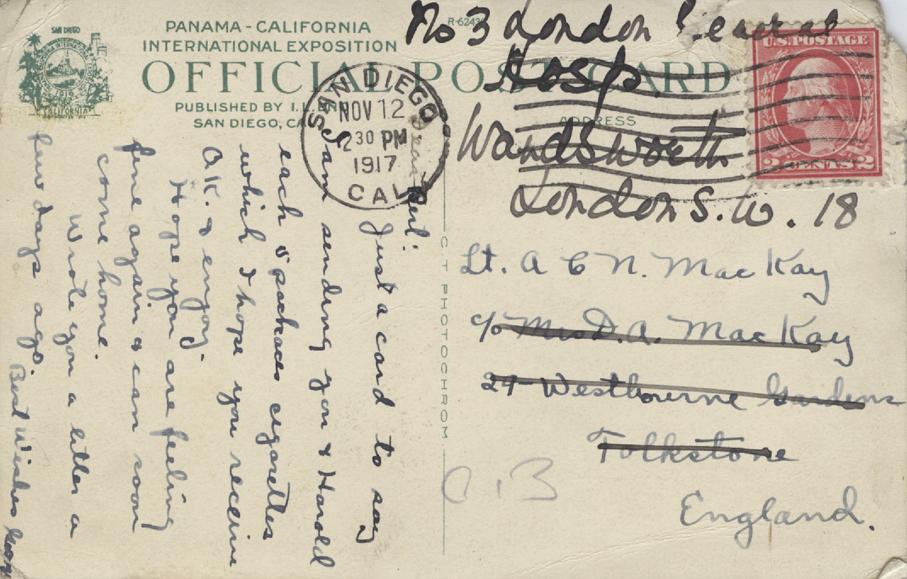 SAN DIEGO
PANAMA - CALIFORNIA
INTERNATIONAL EXPOSITION
OFFICIAL POST CARD
PUBLISHED BY I. L.
SAN DIEGO, CAL
R-6243
ADDRESS
U.S. POSTAGE
2 CENTS 2
SAN DIEGO
NOV 12
2 30 PM
1917
CAL
No 3 London General
Hosp
Wandsworth
London S.W. 18
Lt. A C N. MacKay
c/o Mrs D. A. MacKay
24 Westbourne Gardens
Folkstone
England.
C T PHOTOCHROM
Dear
Just a card to say
I am sending you & Harold
each 5 packages cigarettes
which I hope you receive
O.K. & enjoy.
Hope you are feeling
fine again & can soon
come home.
Wrote you a letter a
few days ago.
Best Wishes